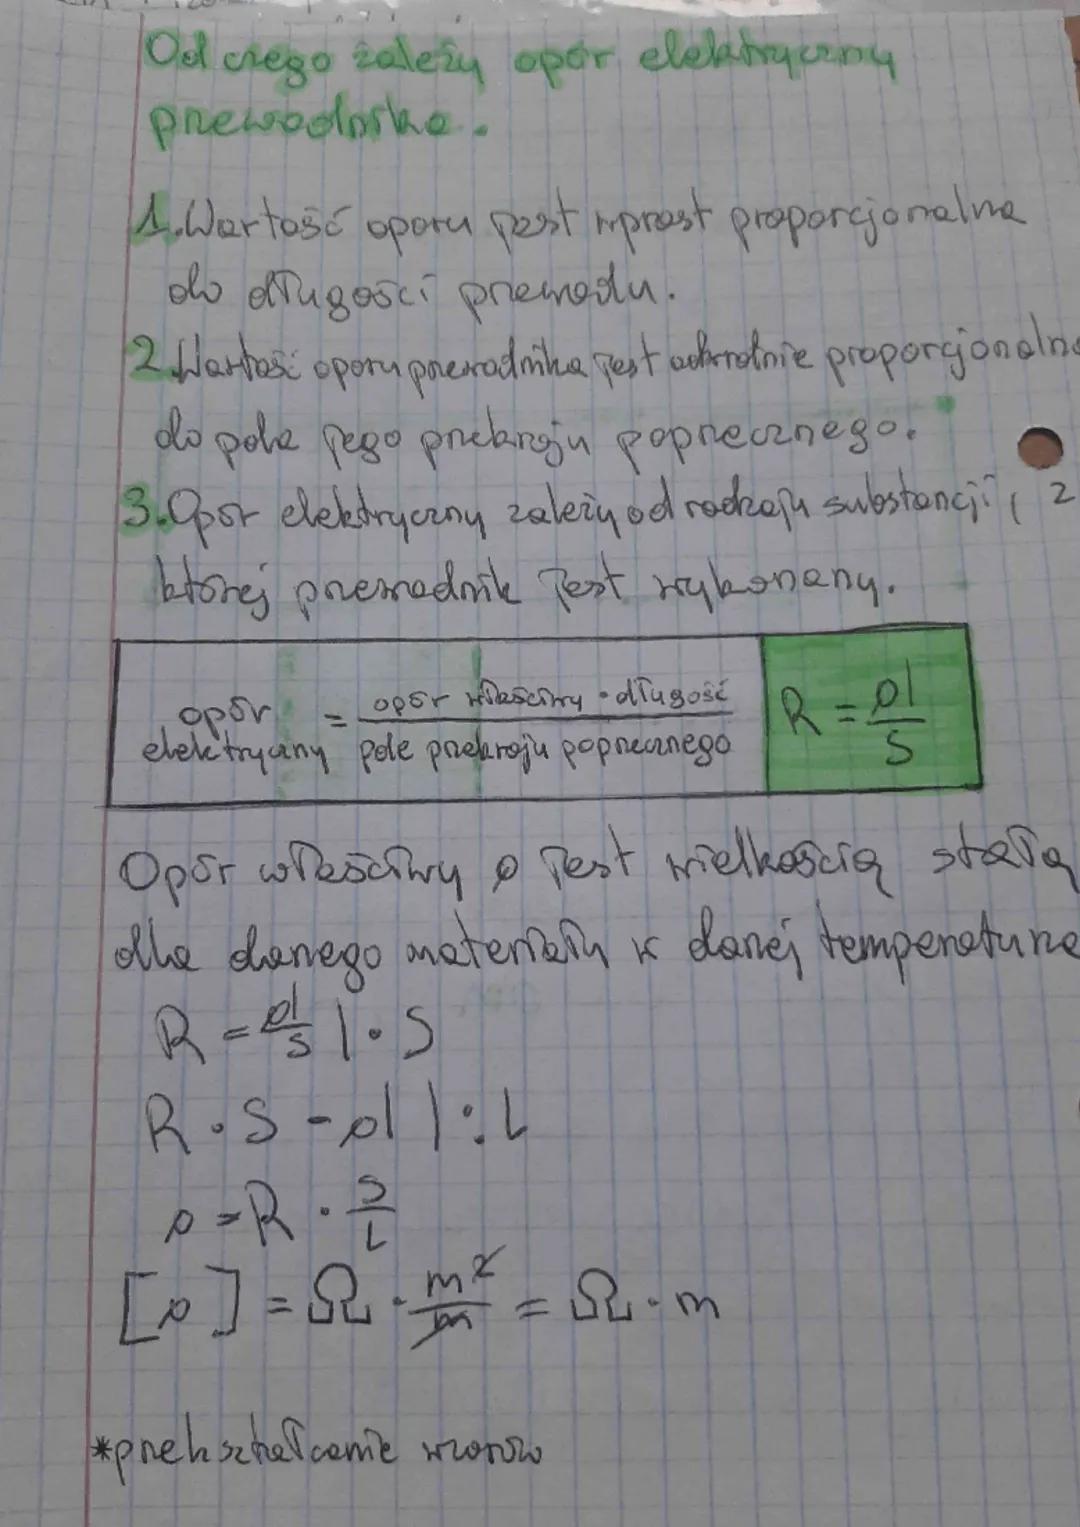 Od czego zależy opór elektryczny
przewodnika.
1. Wartość oporu jest wprost proporcjonalna
do długości przewodu.
2. Wartość oporu przewodnika jest odwrotnie proporcjonalna
do pola jego przekroju poprzecznego.
3. Opór elektryczny zależy od rodzaju substancji, z
której przewodnik jest wykonany.
opór elektryczny = opór właściwy · długość / pole przekroju poprzecznego
R = ρl / S
Opór właściwy ρ jest wielkością stałą
dla danego materiału w danej temperaturze
R = ρl / S | · S
R · S = ρl | : L
ρ = R · S / L
[ρ] = Ω · m² / m = Ω · m
*przekształcanie wzorów